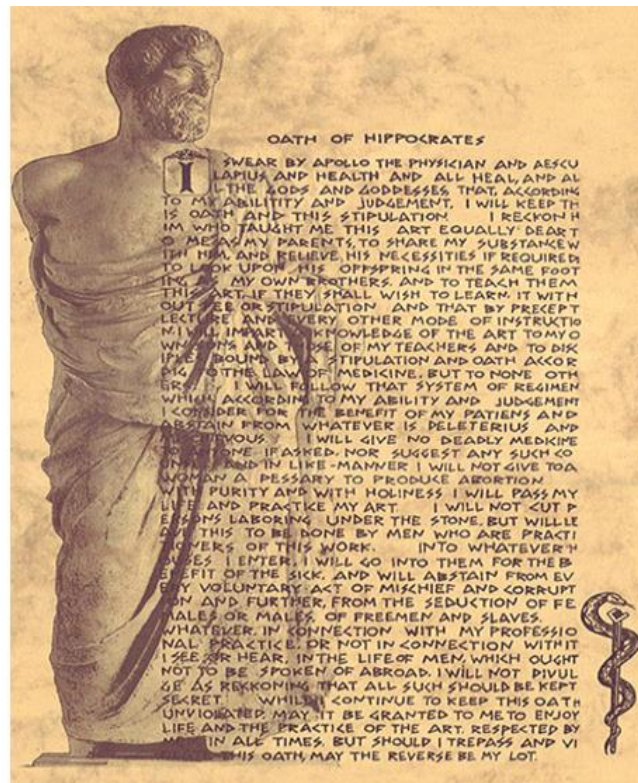 OATH OF HIPPOCRATES
I SWEAR BY APOLLO THE PHYSICIAN AND AESCU
LAPIUS AND HEALTH AND ALL HEAL, AND AL
L THE GODS AND GODDESSES, THAT, ACCORDING
TO MY ABILITITY AND JUDGEMENT, I WILL KEEP TH
IS OATH AND THIS STIPULATION I RECKON H
IM WHO TAUGHT ME THIS ART EQUALLY DEAR T
O ME AS MY PARENTS, TO SHARE MY SUBSTANCE W
ITH HIM, AND RELIEVE HIS NECESSITIES IF REQUIRED;
TO LOOK UPON HIS OFFSPRING IN THE SAME FOOT
ING AS MY OWN BROTHERS, AND TO TEACH THEM
THIS ART, IF THEY SHALL WISH TO LEARN, IT WITH
OUT SEE OR STIPULATION AND THAT BY PRECEPT
LECTURE AND EVERY OTHER MODE OF INSTRUCTIO
N I WILL IMPART A KNOWLEDGE OF THE ART TO MY O
WN SONS AND THOSE OF MY TEACHERS AND TO DISC
IPLES BOUND BY A STIPULATION AND OATH ACCOR
DIG TO THE LAW OF MEDICINE, BUT TO NONE OTH
ERS. I WILL FOLLOW THAT SYSTEM OF REGIMEN
WHICH ACCORDING TO MY ABILITY AND JUDGEMENT
I CONSIDER FOR THE BENEFIT OF MY PATIENS AND
ABSTAIN FROM WHATEVER IS DELETERIUS AND
I WILL GIVE NO DEADLY MEDICINE
TO ANYONE IF ASKED, NOR SUGGEST ANY SUCH CO
AND IN LIKE-MANNER I WILL NOT GIVE TO A
WOMAN A PESSARY TO PRODUCE ABORTION
WITH PURITY AND WITH HOLINESS I WILL PASS MY
LIFE AND PRACTICE MY ART I WILL NOT CUT P
ERSONS LABORING UNDER THE STONE, BUT WILL LE
AVE THIS TO BE DONE BY MEN WHO ARE PRACTI
TIONERS OF THIS WORK. INTO WHATEVER H
OUSES I ENTER, I WILL GO INTO THEM FOR THE B
ENEFIT OF THE SICK, AND WILL ABSTAIN FROM EV
ERY VOLUNTARY ACT OF MISCHIEF AND CORRUPT
ION AND FURTHER, FROM THE SEDUCTION OF FE
MALES OR MALES, OF FREEMEN AND SLAVES.
WHATEVER, IN CONNECTION WITH MY PROFESSIO
NAL PRACTICE, OR NOT IN CONNECTION WITH IT
I SEE OR HEAR, IN THE LIFE OF MEN, WHICH OUGHT
NOT TO BE SPOKEN OF ABROAD, I WILL NOT DIVUL
GE AS REKKONING THAT ALL SUCH SHOULD BE KEPT
SECRET. WHILE I CONTINUE TO KEEP THIS OATH
UNVIOLATED, MAY IT BE GRANTED TO ME TO ENJOY
LIFE AND THE PRACTICE OF THE ART, RESPECTED BY
IN ALL TIMES, BUT SHOULD I TREPASS AND VI
THIS OATH, MAY THE REVERSE BE MY LOT.